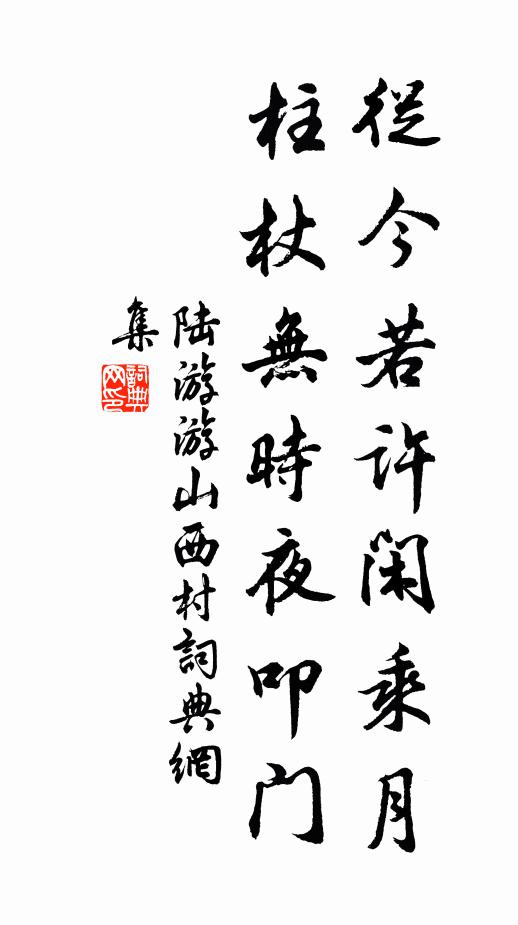 從今若許閑乘月
柱杖無時夜叩门
陆游游山西村詞典網
集
詞典网印